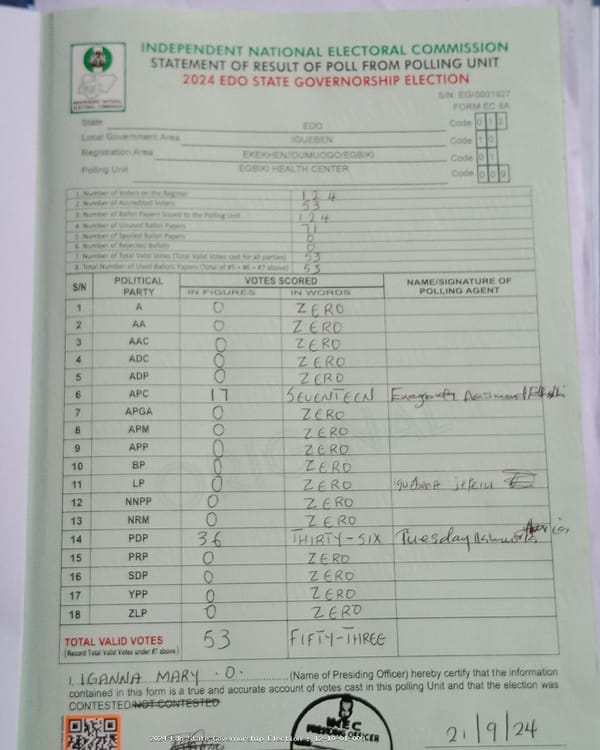 INDEPENDENT NATIONAL ELECTORAL COMMISSION
STATEMENT OF RESULT OF POLL FROM POLLING UNIT
2024 EDO STATE GOVERNORSHIP ELECTION
S/N: EG/0001927
FORM EC 8A
State EDO Code 0 1 2
Local Government Area IGUEBEN Code 1 0
Registration Area EKEKHEN/IDUMUOGO/EGBIKI Code 0 1
Polling Unit EGBIKI HEALTH CENTER Code 0 0 9
1. Number of Voters on the Register 124
2. Number of Accredited Voters 53
3. Number of Ballot Papers Issued to the Polling Unit 124
4. Number of Unused Ballot Papers 71
5. Number of Spoiled Ballot Papers 0
6. Number of Rejected Ballots 0
7. Number of Total Valid Votes (Total Valid Votes cast for all parties) 53
8. Total Number of Used Ballots Papers (Total of #5 + #6 + #7 above) 53
S/N POLITICAL PARTY VOTES SCORED NAME/SIGNATURE OF POLLING AGENT
IN FIGURES IN WORDS
1 A 0 ZERO
2 AA 0 ZERO
3 AAC 0 ZERO
4 ADC 0 ZERO
5 ADP 0 ZERO
6 APC 17 SEVENTEEN
7 APGA 0 ZERO
8 APM 0 ZERO
9 APP 0 ZERO
10 BP 0 ZERO
11 LP 0 ZERO
12 NNPP 0 ZERO
13 NRM 0 ZERO
14 PDP 36 THIRTY-SIX Tuesday
15 PRP 0 ZERO
16 SDP 0 ZERO
17 YPP 0 ZERO
18 ZLP 0 ZERO
TOTAL VALID VOTES 53 FIFTY-THREE
(Record Total Valid Votes under #7 above)
I, IGANNA MARY .O. (Name of Presiding Officer) hereby certify that the information
contained in this form is a true and accurate account of votes cast in this polling Unit and that the election was
CONTESTED/NOT CONTESTED
INEC
21/9/24
2024 Edo State Governorship Election